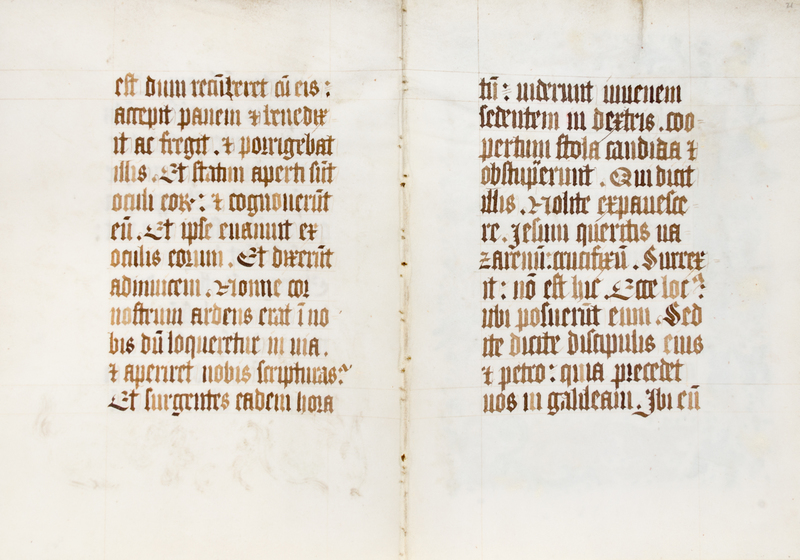 est dum recūberet cū eis :
accepit panem ⁊ benedix
it ac fregit . ⁊ porrigebat
illis . Et statim aperti sūt
oculi eoꝝ : ⁊ cognouerūt
eū . Et ipse euanuit ex
oculis eorum . Et dixerūt
adinuicem . Nonne cor
nostrum ardens erat ī no
bis dū loqueretur in uia .
⁊ aperiret nobis scripturas?
Et surgentes eadem hora
tū : uiderunt iuuenem
sedentem in dextris . coo
pertum stola candida ⁊
obstupuerunt . Qui dicit
illis . Nolite expauesce
re . Jesum queritis na
zarenū : crucifixū . Surrex
it : nō est hic . Ecce locꝰ
ubi posuerūt eum . Sed
ite dicite discipulis eius
⁊ petro : quia precedet
uos in galileam . Ibi eū